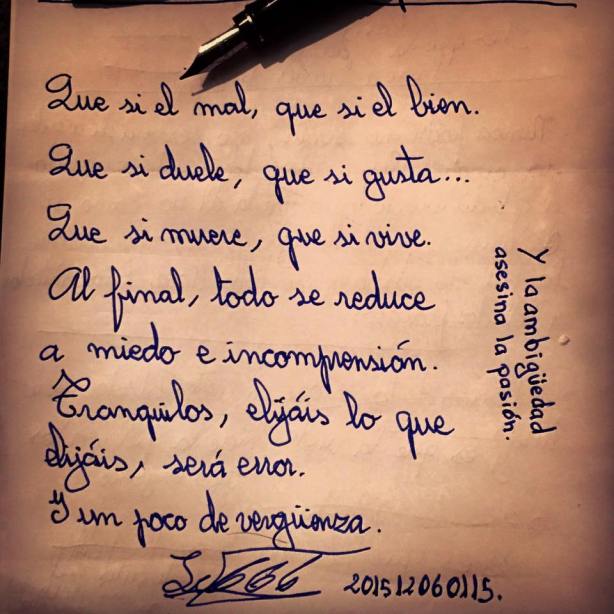 Que si el mal, que si el bien.
Que si duele, que si gusta...
Que si muere, que si vive.
Al final, todo se reduce
a miedo e incomprensión.
Tranquilos, elijáis lo que
elijáis, será error.
Y un poco de vergüenza.
201512060115.
Y la ambigüedad
asesina la pasión.